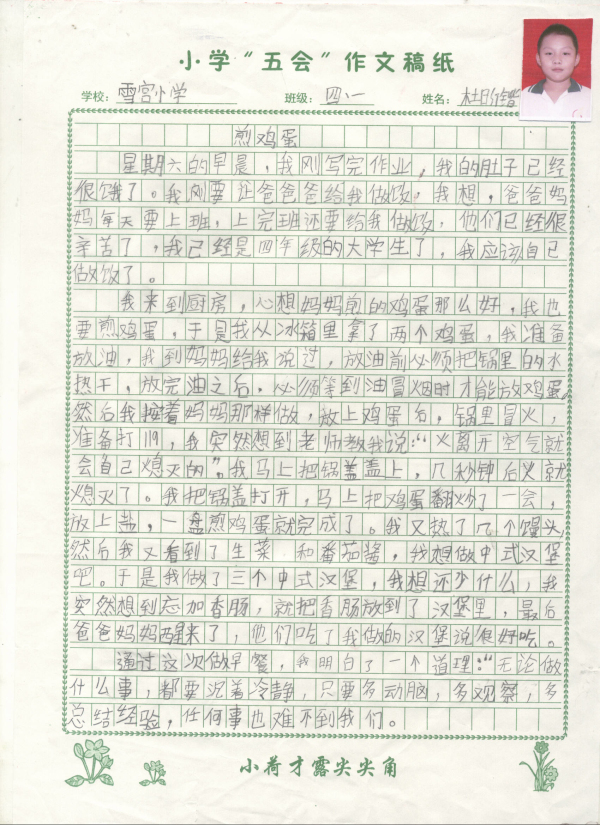 小学“五会”作文稿纸
学校：雪宫小学 班级：四、一 姓名：杜
煎鸡蛋
星期六的早晨，我刚写完作业，我的肚子已经
很饿了。我刚要让爸爸爸给我做饭，我想，爸爸妈
妈每天要上班，上完班还要给我做饭，他们已经很
辛苦了，我已经是四年级的大学生了，我应该自己
做饭了。
我来到厨房，心想妈妈煎的鸡蛋那么好，我也
要煎鸡蛋，于是我从冰箱里拿了两个鸡蛋，我准备
放油，我到妈妈给我说过，放油前必须把锅里的水
热干，放完油之后，必须等到油冒烟时才能放鸡蛋。
然后我按着妈妈那样做，放上鸡蛋后，锅里冒火，
准备打119，我突然想到老师教我说：“火离开空气就
会自己熄灭的”。我马上把锅盖盖上，几秒钟后火就
熄灭了。我把锅盖打开，马上把鸡蛋翻炒了一会，
放上盐，一盘煎鸡蛋就完成了。我又热了几个馒头，
然后我又看到了生菜 和番茄酱，我想做中式汉堡
吧。于是我做了三个中式汉堡，我想还少什么，我
突然想到忘加香肠，就把香肠放到了汉堡里，最后
爸爸妈妈醒来了，他们吃了我做的汉堡说很好吃。
通过这次做早餐，我明白了一个道理：“无论做
什么事，都要沉着冷静，只要多动脑，多观察，多
总结经验，任何事也难不到我们。
小荷才露尖尖角